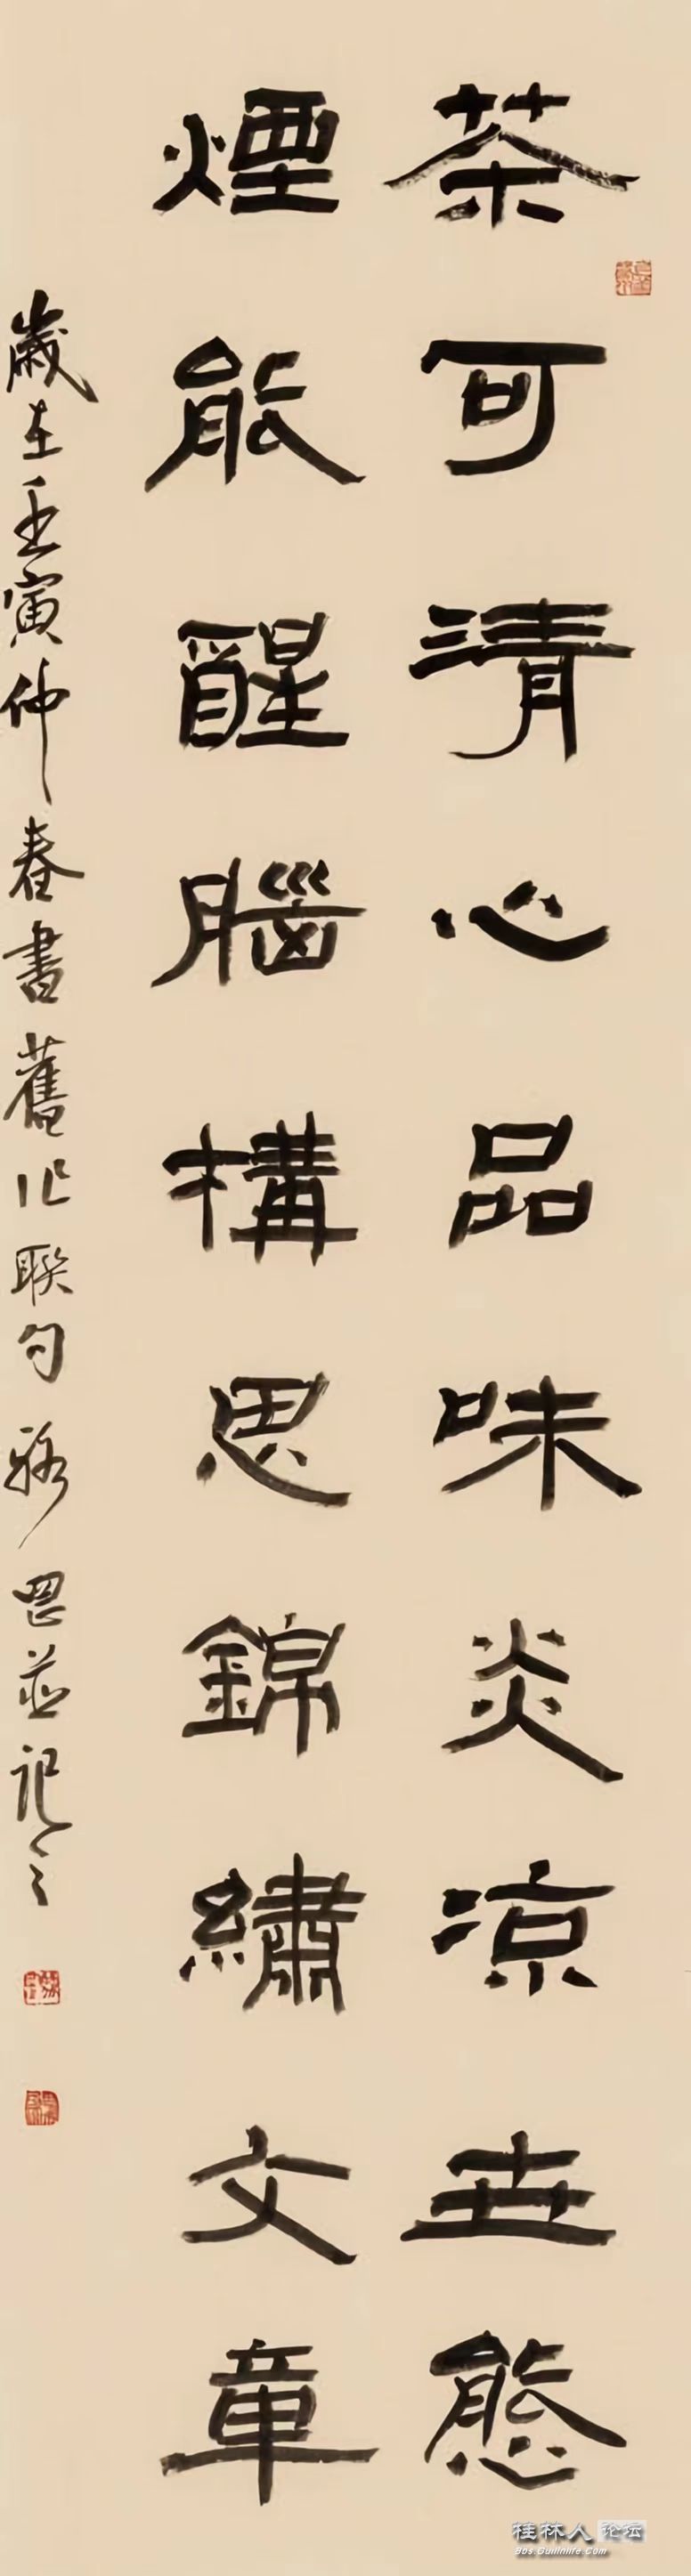 茶可清心品味炎凉世態
煙能醒腦構思錦繡文章
歲在壬寅仲春書舊作聯句
並記之
桂林人论坛
Bbs.Guilinlife.Com